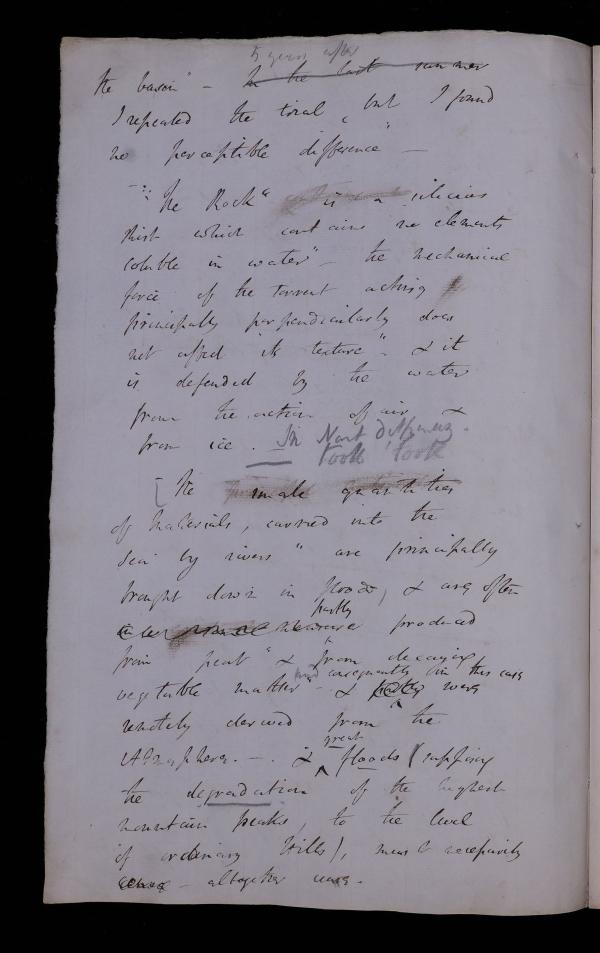 5 years after
the bason" - In the last summer
I repeated the trial, but I found
no perceptible difference" -
"The Rock" is a silicious
schist which contains no elements
soluble in water" - the mechanical
force of the torrent acting
principally perpendicularly does
not affect its texture", & it
is defended by the water
from the action of air &
from ice. In
took took
[The small quantities
of materials, carried into the
sea by rivers" are principally
brought down in floods, & are often
partly
produced
from peat" & from decaying
and consequently in this case
vegetable matter" - & were
remotely derived from the
Atmosphere. - . & floods (supposing
great
the degradation of the highest
mountain peaks, to the level
of ordinary Hills), must necessarily
- altogether cease.